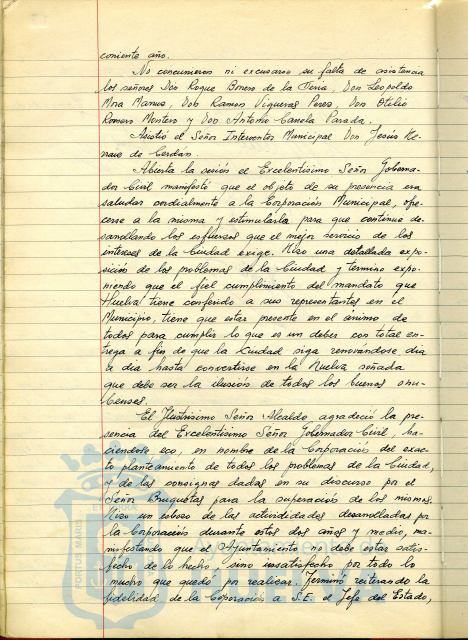 corriente año.
No concurrieron ni excusaron su falta de asistencia
los señores Don Roque Borrero de la Feria, Don Leopoldo
Mora Don Ramon Vigueras Perez, Don Otilio
Romero Montero y Don Antonio Canela Parada.
Asistió el Señor Interventor Municipal Don Jesús He-
de Cerdán.
Abierta la sesión el Excelentísimo Señor Goberna-
dor Civil manifestó que el objeto de su presencia era
saludar cordialmente a la Corporación Municipal, ofre-
cerse a la misma y estimularla para que continue de-
sarrollando los esfuerzos que el mejor servicio de los
intereses de la Ciudad exige. Hizo una detallada expo-
sición de los problemas de la Ciudad y termino expo-
niendo que el fiel cumplimiento del mandato que
Huelva tiene conferido a sus representantes en el
Municipio, tiene que estar presente en el animo de
todos para cumplir lo que es un deber con total en-
trega a fin de que la Ciudad siga renovándose dia
a dia hasta convertirse en la Huelva soñada
que debe ser la ilusión de todos los buenos onu-
benses.
El Ilustrísimo Señor Alcalde agradeció la pre-
sencia del Excelentísimo Señor Gobernador Civil, ha-
ciendose eco, en nombre de la Corporación del exac-
to planteamiento de todos los problemas de la Ciudad,
y de las consignas dadas en su discurso por el
Señor para la superación de los mismos.
Hizo un esbozo de las actividades desarrolladas por
la Corporación durante estos dos años y medio, ma-
nifestando que el Ayuntamiento no debe estar satis-
fecho de lo hecho, sino insatisfecho por todo lo
mucho que queda por realizar. Terminó reiterando la
fidelidad de la Corporación a S.E. el Jefe del Estado,
PORTUS MARIS